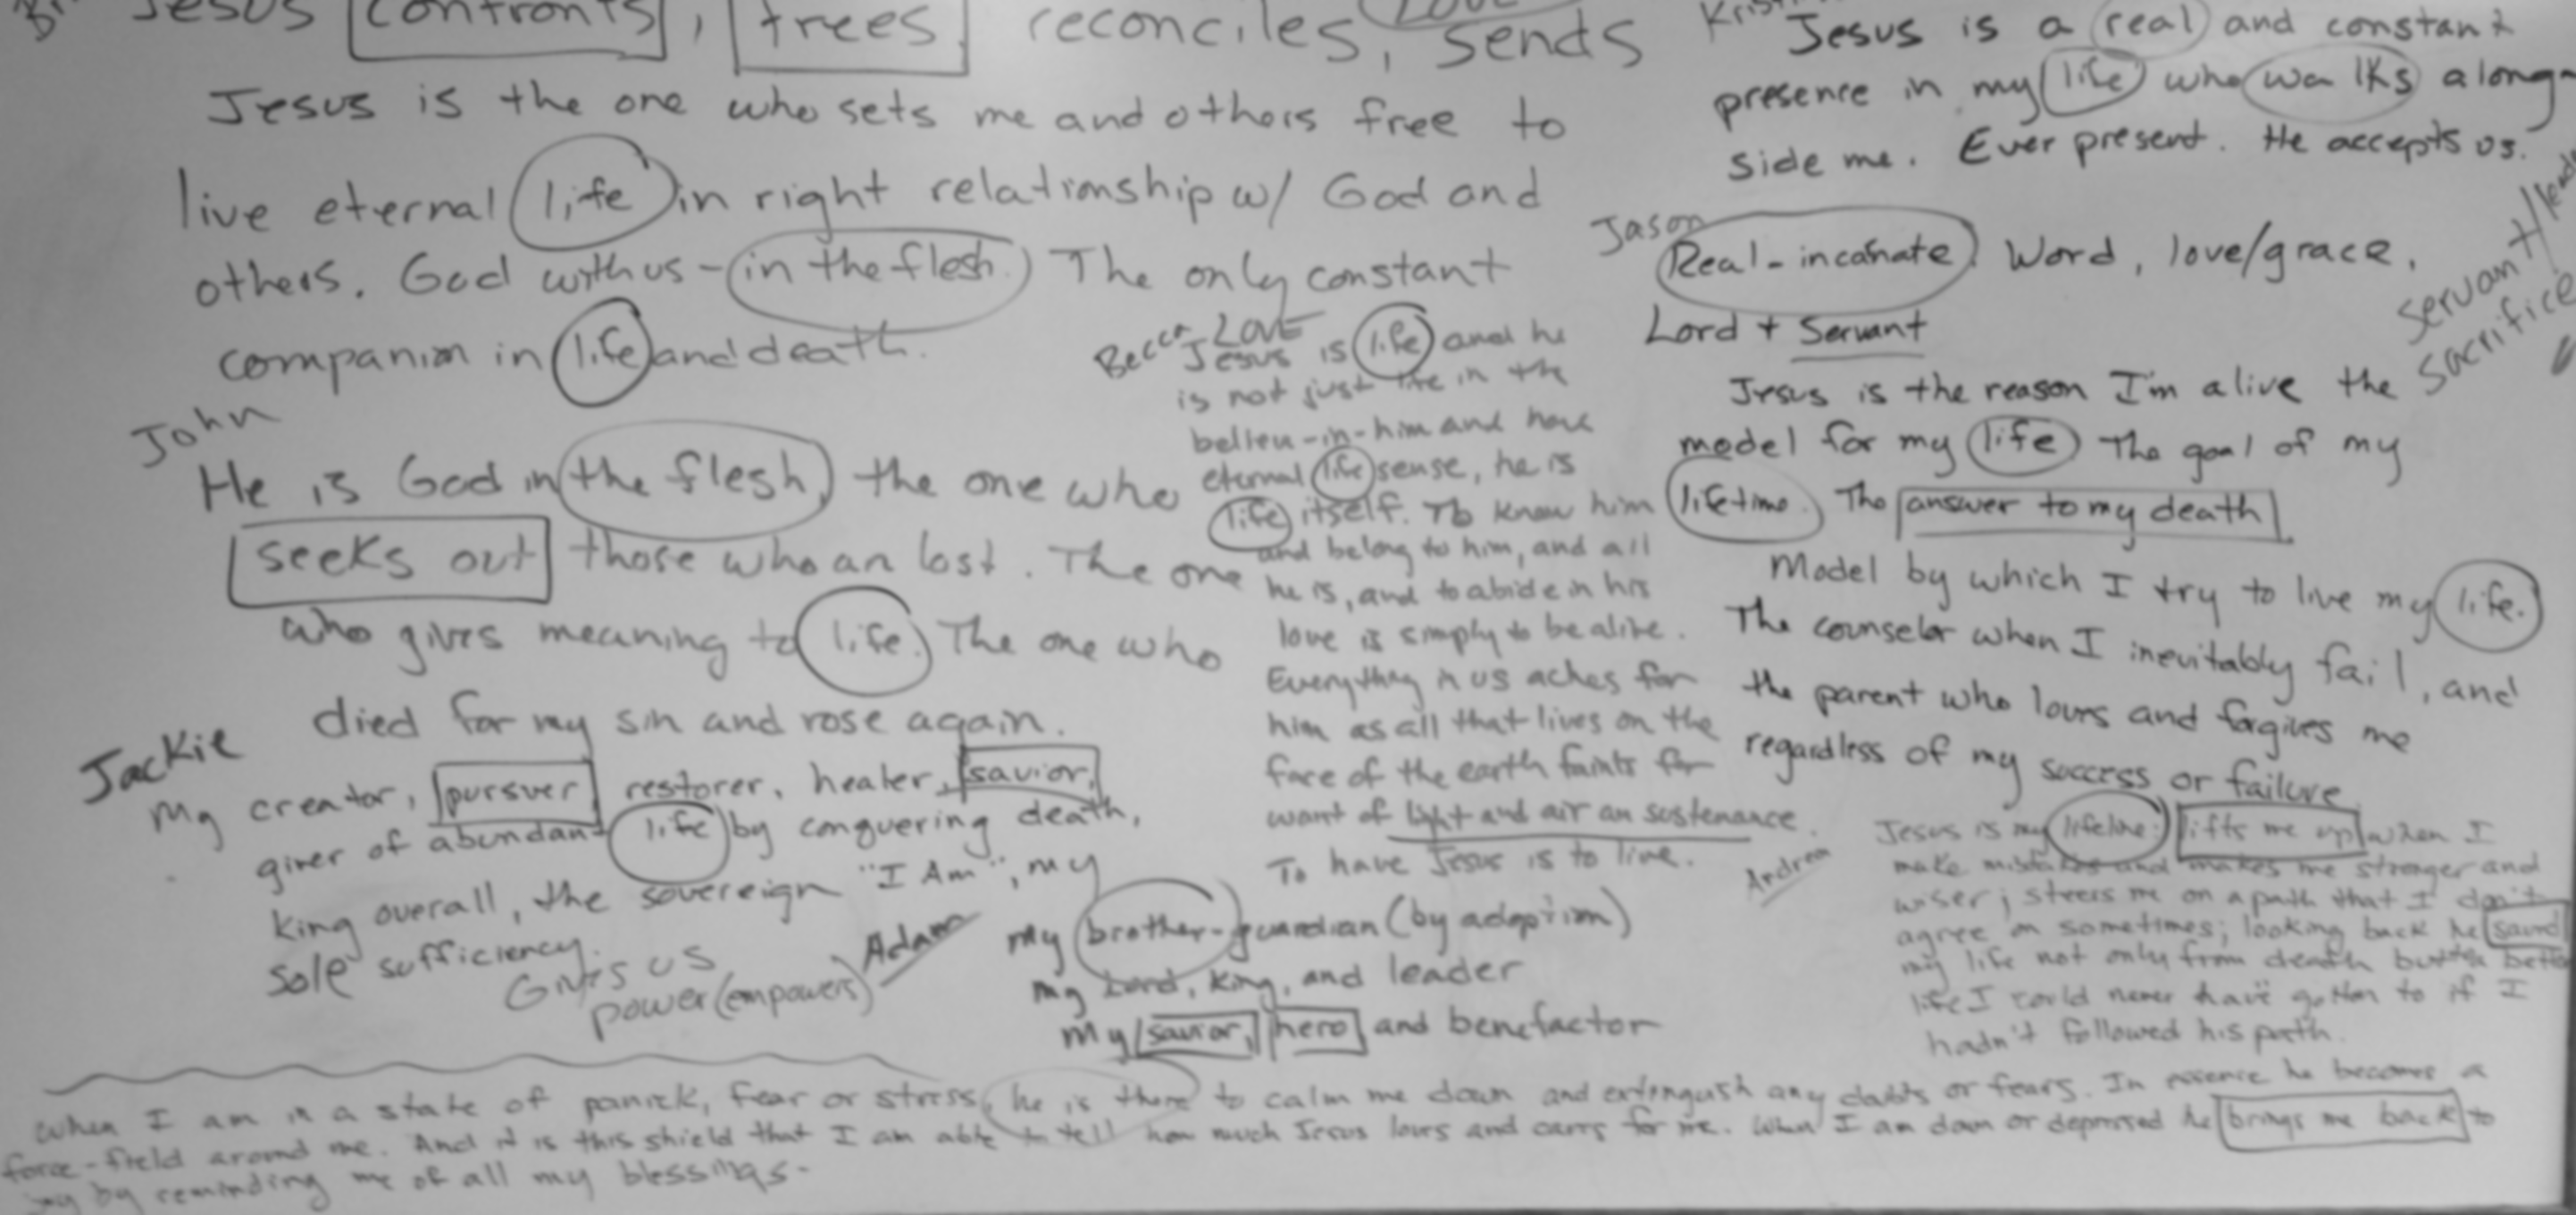 Jesus confronts, frees, reconciles, sends
Love
Jesus is the one who sets me and others free to
live eternal life in right relationship w/ God and
others. God with us - in the flesh. The only constant
companion in life and death.
John
He is God in the flesh, the one who
seeks out those who an lost. The one
who gives meaning to life. The one who
died for my sin and rose again.
Jackie
My creator, pursuer, restorer, healer, savior,
giver of abundant life by conquering death,
king overall, the sovereign "I Am", my
sole sufficiency.
Gives us
power (empowers)
Becca
LOVE
Jesus is life and he
is not just life in the
believe-in-him and have
eternal life sense, he is
life itself. To know him
and belong to him, and all
he is, and to abide in his
love is simply to be alive.
Everything in us aches for
him as all that lives on the
face of the earth faints for
want of light and air an sustenance.
To have Jesus is to live.
Adam
My brother-guardian (by adoption)
My Lord, king, and leader
My savior, hero, and benefactor
Jesus is a real and constant
presence in my life who walks along-
side me. Ever present. He accepts us.
Jason
Real-incarnate. Word, love/grace,
Lord + Servant
Servant
sacrifice
Jesus is the reason I'm alive the
model for my life The goal of my
lifetime. The answer to my death
Model by which I try to live my life.
The counselor when I inevitably fail, and
the parent who loves and forgives me
regardless of my success or failure
Andrea
Jesus is my lifeline: lifts me up when I
make mistakes and makes me stronger and
wiser; steers me on a path that I don't
agree on sometimes; looking back he saved
my life not only from death but
life I could never have gotten to if I
hadn't followed his path.
When I am in a state of panick, fear or stress, he is there to calm me down and extinguish any doubts or fears. In essence he becomes a
force-field around me. And it is this shield that I am able to tell how much Jesus loves and cares for me. When I am down or depressed he brings me back to
joy by reminding me of all my blessings.